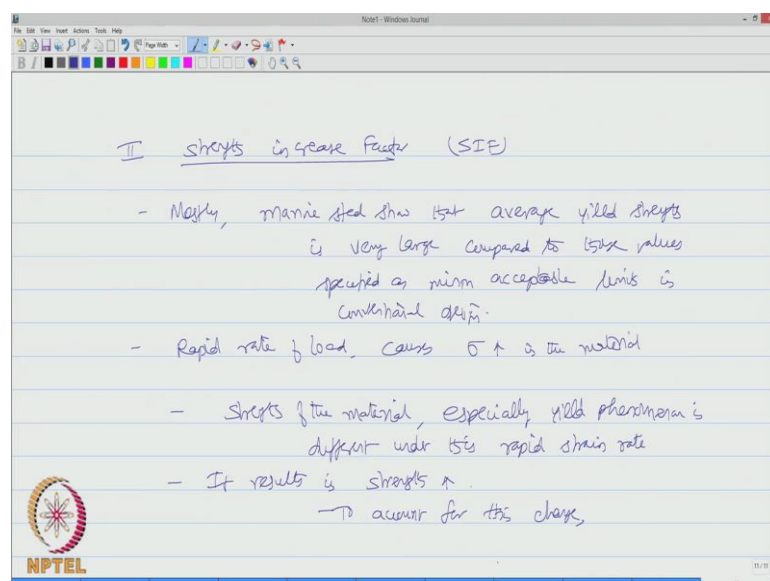 Note1 - Windows Journal
File Edit View Insert Actions Tools Help
Page Width
B I
II Strength increase Factor (SIF)
- Mostly, marine steel show that average yield strength
is very large compared to those values
specified as minm acceptable limits in
conventional design.
- Rapid rate of load, causes σ ↑ in the material
- Strength of the material, especially yield phenomenon is
different under this rapid strain rate
- It results in strength ↑.
→ To account for this change,
NPTEL
11/11